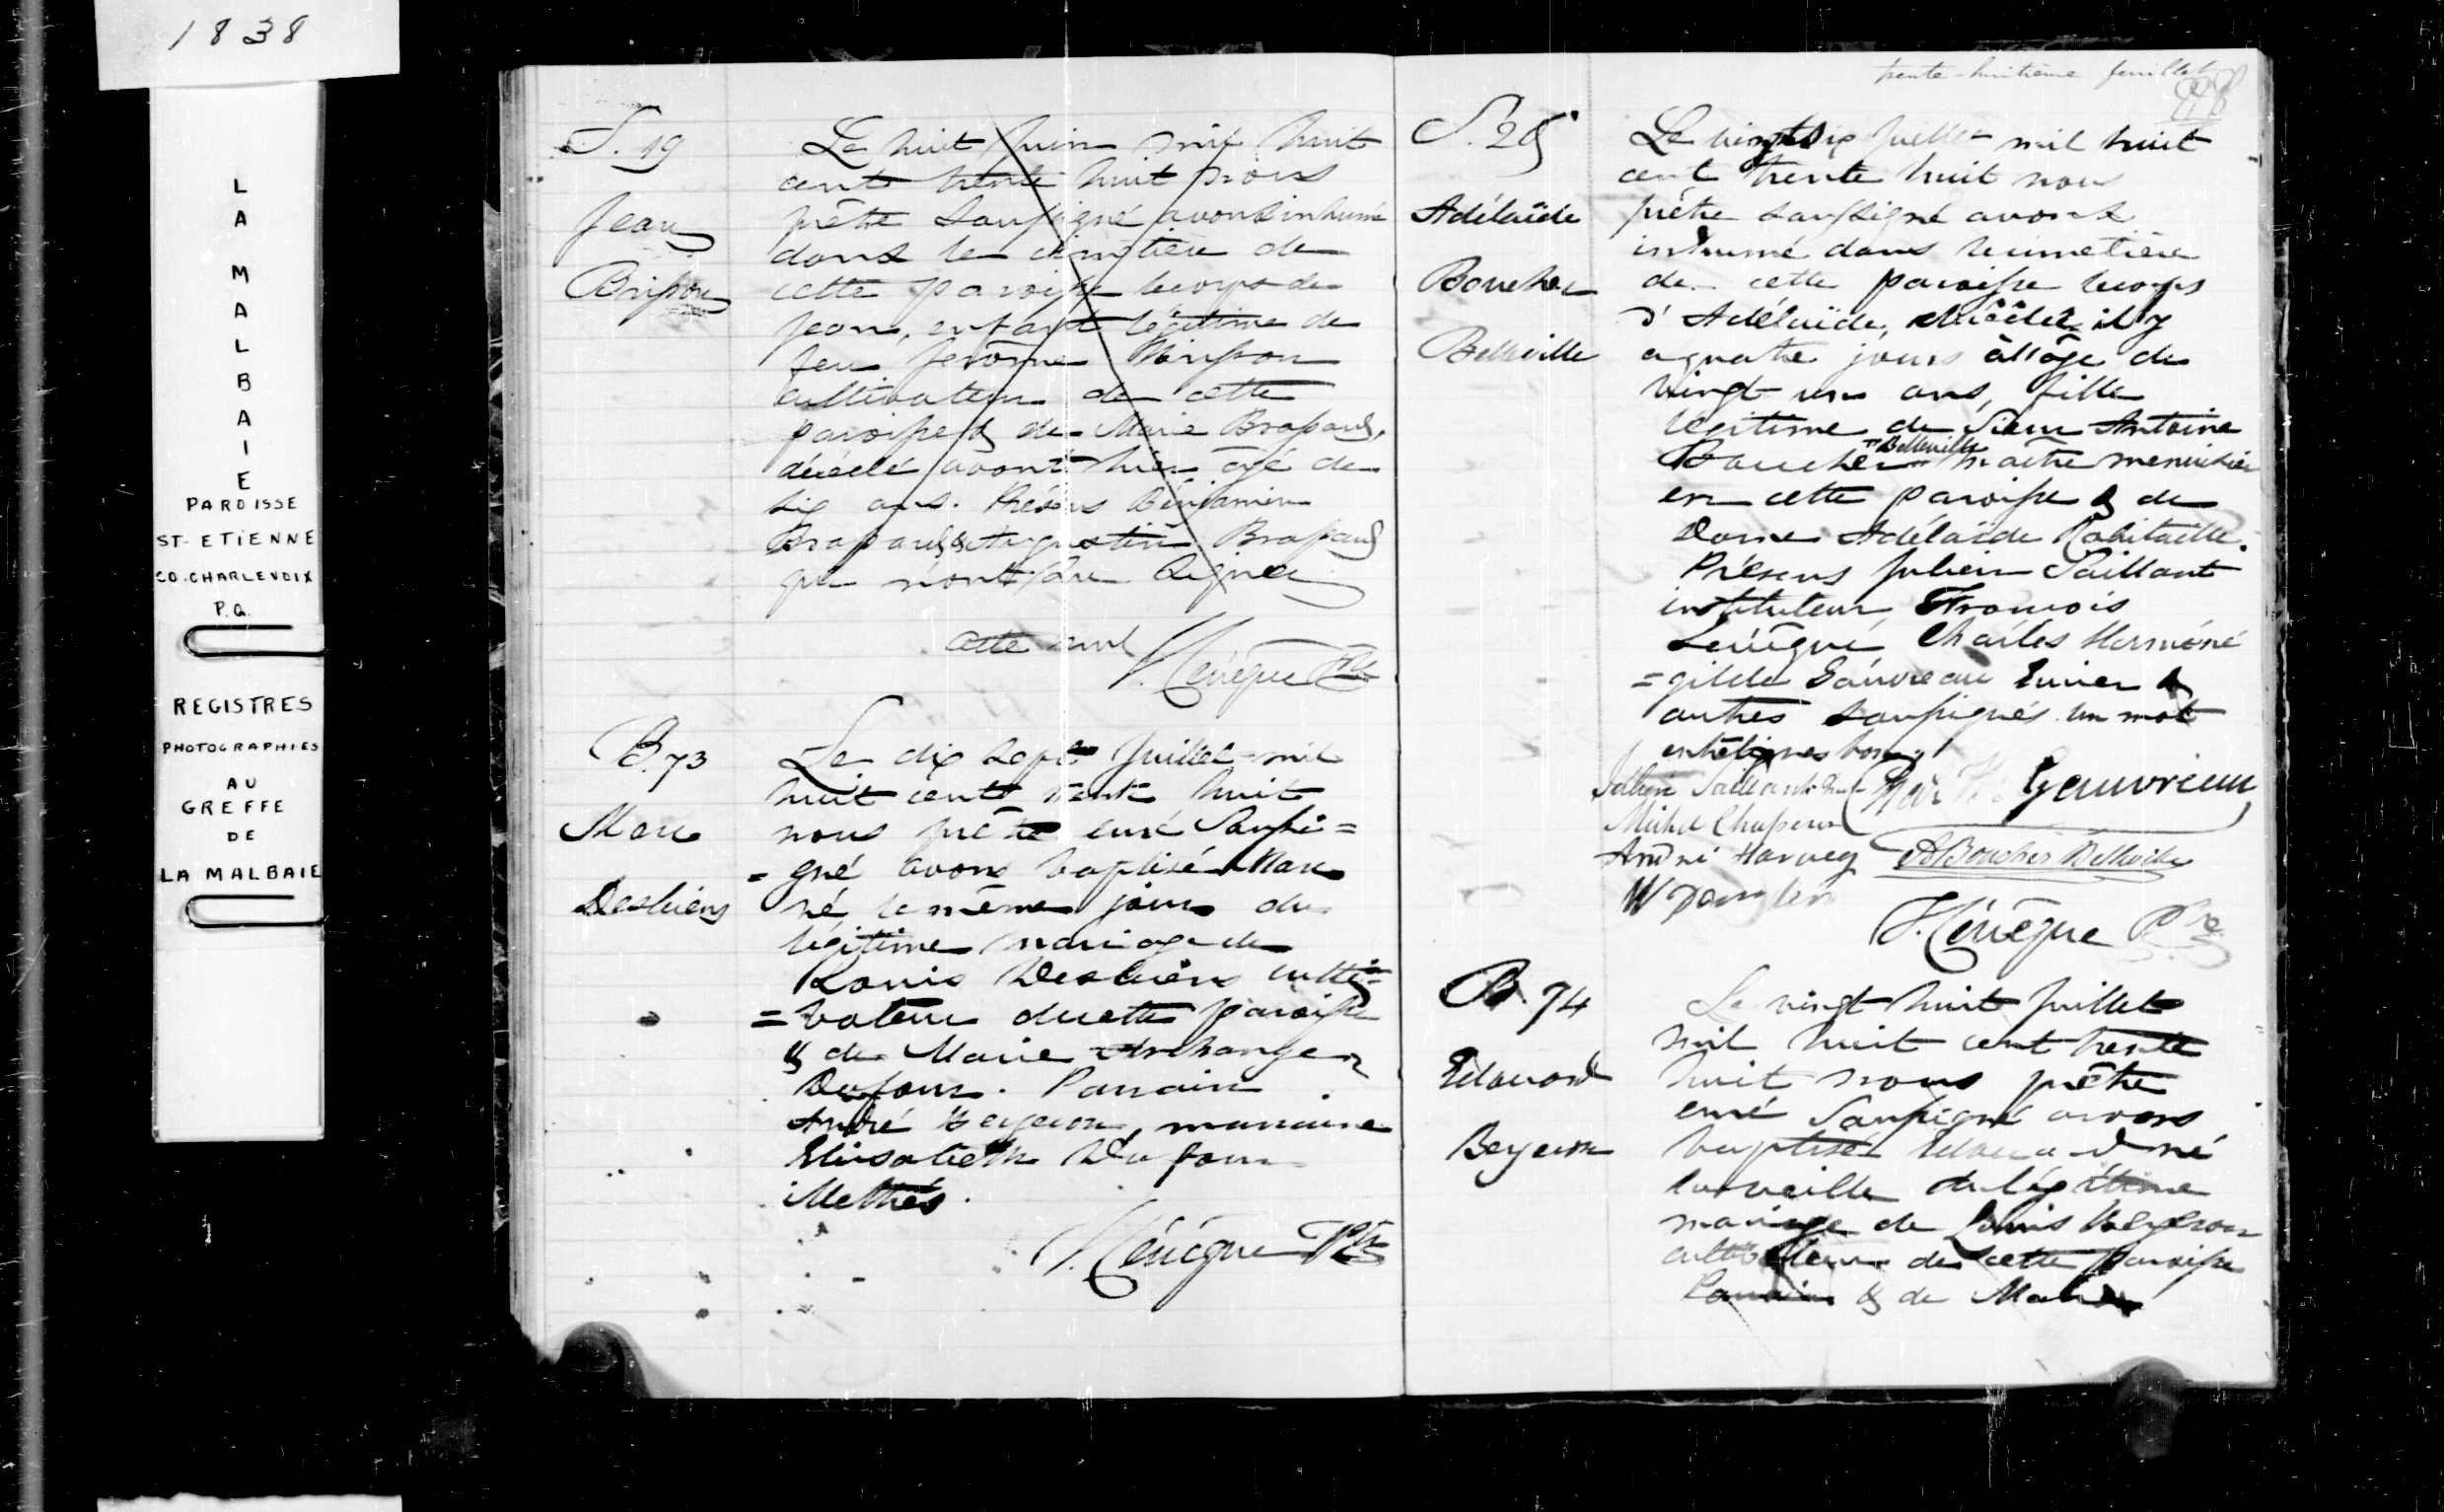 1838
LA MALBAIE
PAROISSE
ST-ETIENNE
CO.CHARLEVOIX
P.Q.
REGISTRES
PHOTOGRAPHIÉS
AU
GREFFE
DE
LA MALBAIE
S. 19
Jean
Brisson
Le huit Juin mil huit
cent trente huit nous
prêtre soussigné avons inhumé
dans le cimetière de
cette paroisse le corps de
Jean, enfant légitime de
feu Jerôme Brisson
cultivateur de cette
paroisse & de Marie Brassard,
décédé avant hier âgé de
six ans. Présens Benjamin
Brassard & Augustin Brassard
qui n'ont su signer
acte nul
Lévêque Ptre
B. 73
Marc
Desbiens
Le dix sept Juillet mil
huit cent trente huit
nous prêtre curé soussi=
=gné avons baptisé Marc
né le même jour du
légitime mariage de
Louis Desbiens culti=
=vateur de cette paroisse
& de Marie Archange
Dufour. Parrain
André Bergeron, marraine
Elisabeth Dufour
illettrés.
Lévêque Ptre
trente-huitième feuillet
38
S. 25
Adélaïde
Boucher
Belleville
Le vingt six Juillet mil huit
cent trente huit nous
prêtre soussigné avons
inhumé dans le cimetière
de cette paroisse le corps
d'Adélaïde, décédée il y
a quatre jours à l'âge de
vingt un ans, fille
légitime de Sieur Antoine
Boucher Belleville maître menuisier
en cette paroisse & de
Dame Adélaïde Robitaille.
Présens Julien Saillant
instituteur, François
Lévêque Charles Herméné
=gilde Gauvreau Ecuier &
autres soussignés. un mot
entreligne bon
Julien Saillant
Gauvreau
Michel Chaperon
André Harvey A Boucher Belleville
Lévêque Ptre
B. 74
Edouard
Bergeron
Le vingt huit Juillet
mil huit cent trente
huit nous prêtre
curé soussigné avons
baptisé Edouard né
la veille du légitime
mariage de Louis Bergeron
cultivateur de cette paroisse
Parrain & de Marie